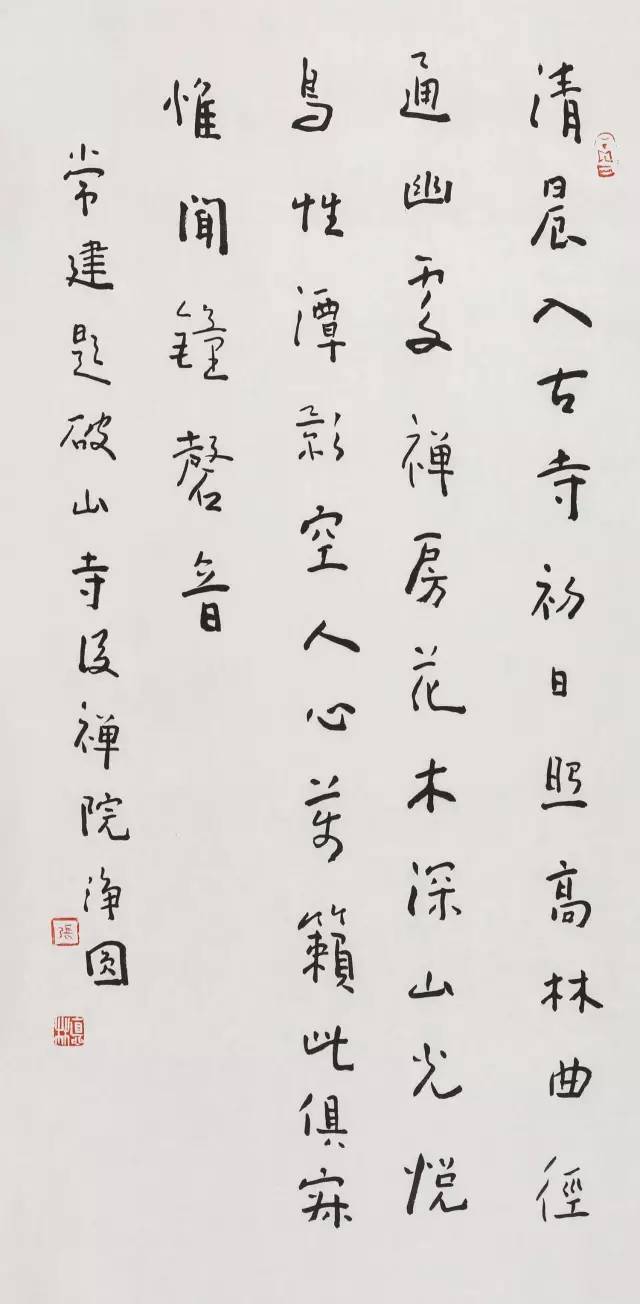 清晨入古寺初日照高林曲徑
通幽處禅房花木深山光悦
鳥性潭影空人心萬籟此俱寂
惟聞鐘磬音
常建題破山寺後禅院净圓
張